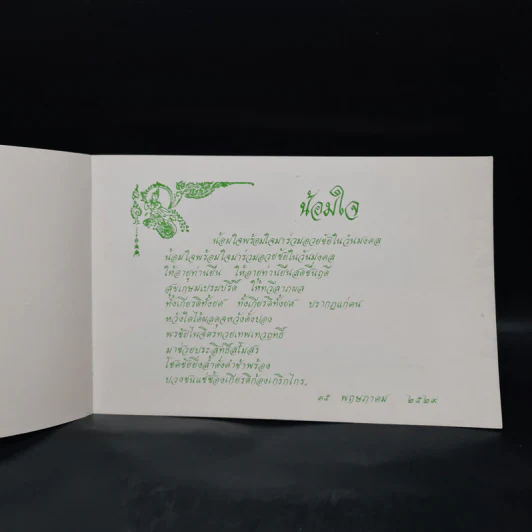 น้อมใจ
น้อมใจพร้อมใจมาร่วมอวยชัยในวันมงคล
น้อมใจพร้อมใจมาร่วมอวยชัยในวันมงคล
ให้อายุท่านยืน ให้อายุท่านยืนสดชื่นฤดี
สุขเกษมเปรมปรีดิ์ ให้ทวีลาภผล
ทั้งเกียรติทั้งยศ ทั้งเกียรติทั้งยศ ปรากฏแก่คน
หวังใดได้ผลดุจหวังดั่งปอง
พรชัยไพจิตรทวยเทพเทวฤทธิ์
มาช่วยประสิทธิ์สโมสร
โชคชัยยิ่งล้ำดั่งคำข้าพร้อง
ปวงชนแซ่ซ้องเกียรติก้องเกริกไกร.
พฤษภาคม ๒๕๒๙